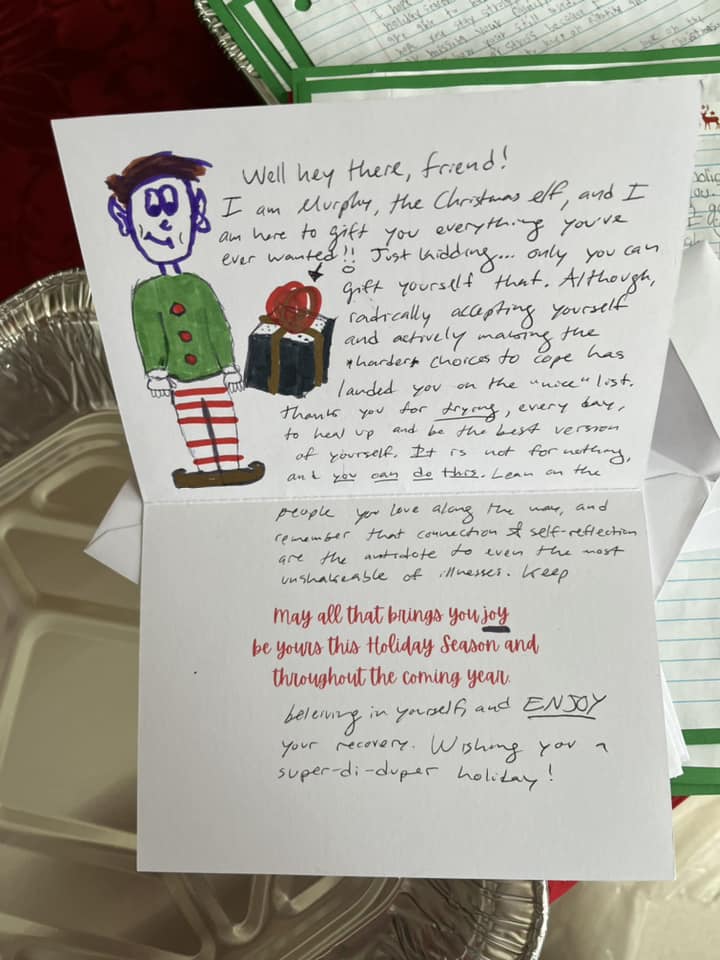 Well hey there, friend!
I am Murphy, the Christmas elf, and I
am here to gift you everything you've
ever wanted!! Just kidding... only you can
gift yourself that. Although,
radically accepting yourself
and actively making the
*harder* choices to cope has
landed you on the "nice" list.
Thank you for trying, every day,
to heal up and be the best version
of yourself. It is not for nothing,
and you can do this. Lean on the
people you love along the way, and
remember that connection & self-reflection
are the antidote to even the most
unshakeable of illnesses. Keep
May all that brings you joy
be yours this Holiday Season and
throughout the coming year.
beleiving in yourself, and ENJOY
your recovery. Wishing you a
super-di-duper holiday!